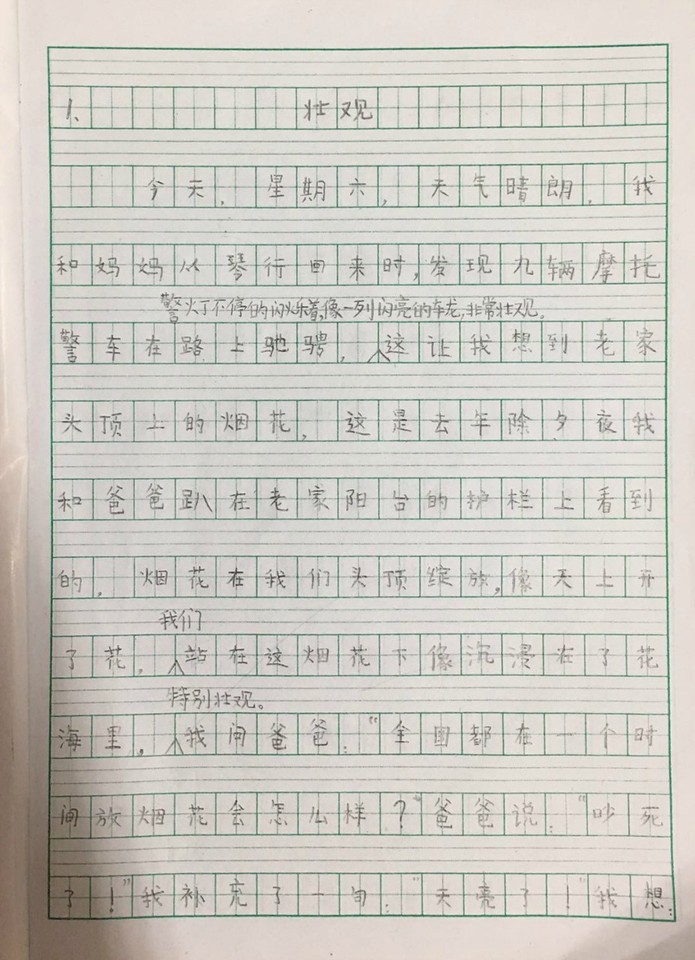 1、壮观
今天，星期六，天气晴朗，我
和妈妈从琴行回来时，发现九辆摩托
警灯不停的闪烁着，像一列闪亮的车龙，非常壮观。
警车在路上驰骋，这让我想到老家
头顶上的烟花，这是去年除夕夜我
和爸爸趴在老家阳台的护栏上看到
的，烟花在我们头顶绽放，像天上开
我们
了花，站在这烟花下像沉浸在了花
特别壮观。
海里，我问爸爸：“全国都在一个时
间放烟花会怎么样？”爸爸说：“吵死
了！”我补充了一句：“天亮了！”我想：